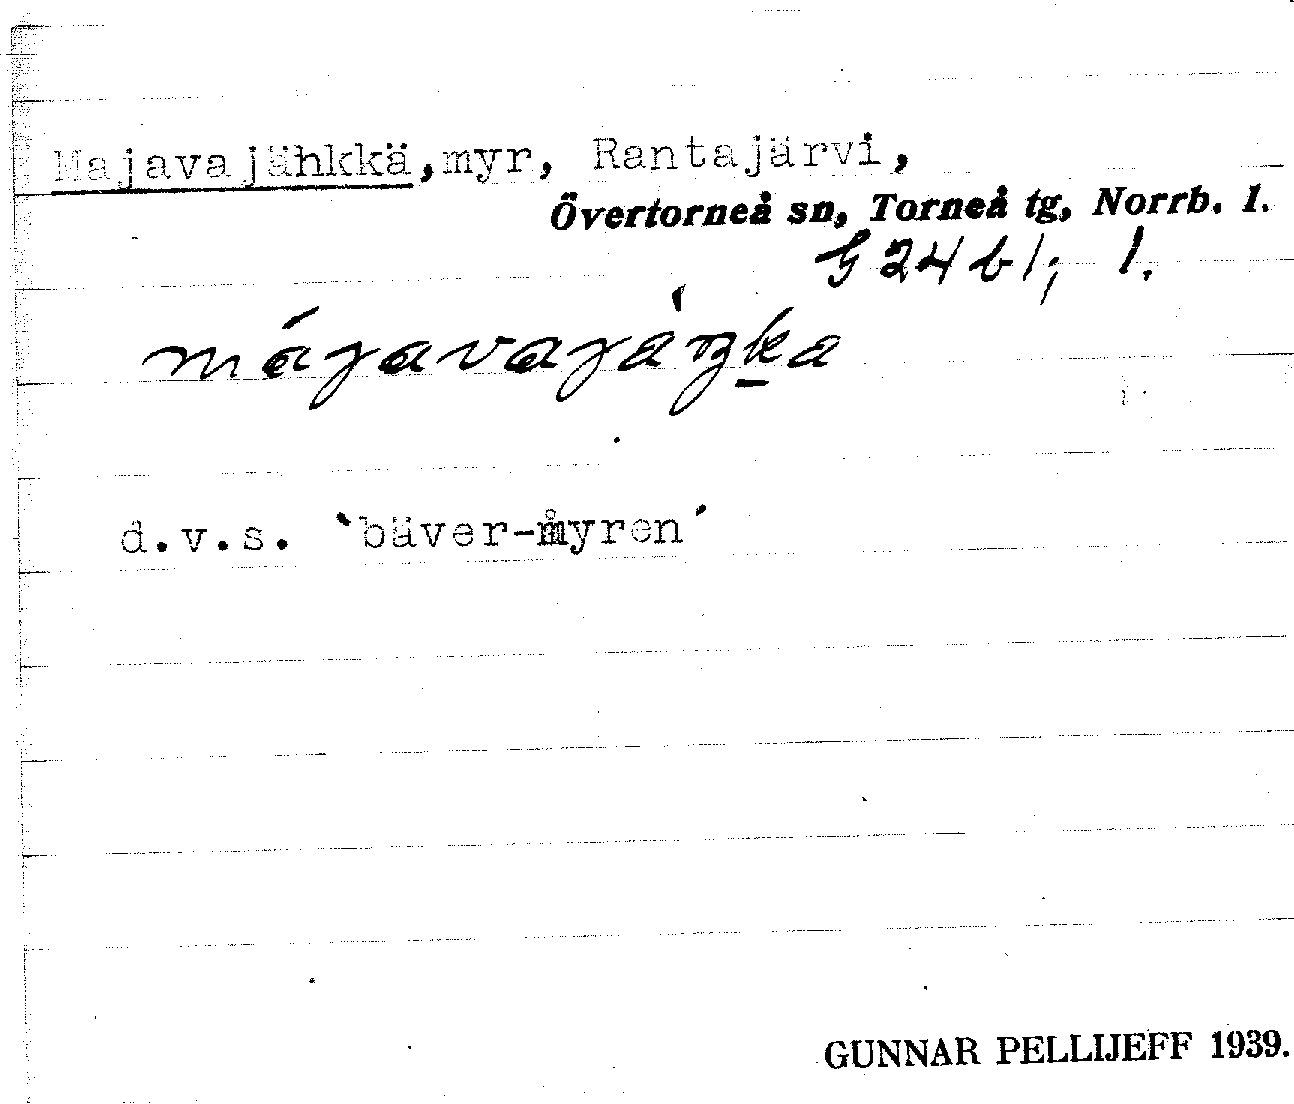 Majavajähkkä, myr, Rantajärvi,
Övertorneå sn, Torneå tg, Norrb. l.
G 24 b 1; 1.
d.v.s. `bäver-myren´
GUNNAR PELLIJEFF 1939.